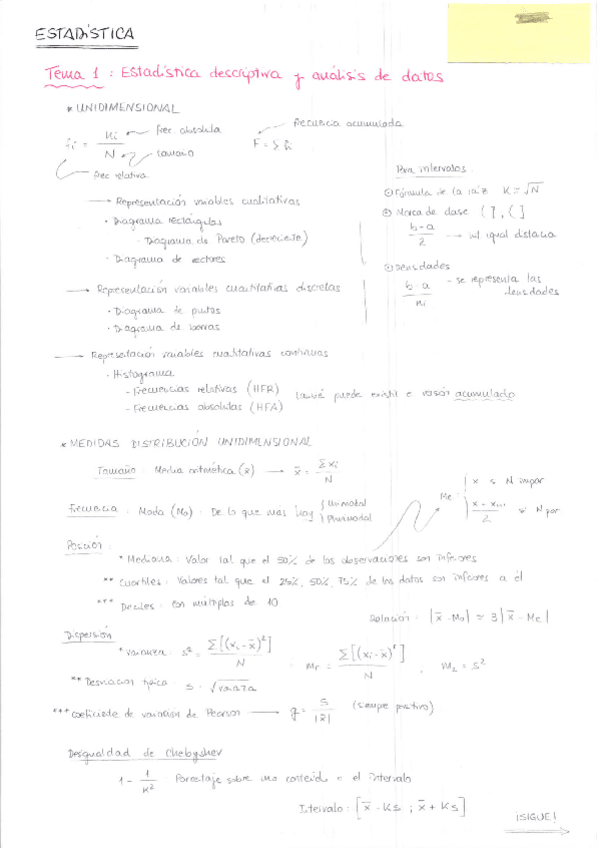 ESTADÍSTICA
Tema 1 : Estadística descriptiva y análisis de datos
* UNIDIMENSIONAL
Frec absoluta
Frecuencia acumulada
fi = ni / N
F = Σ fi
tamaño
Frec relativa
Para intervalos
Fórmula de la raíz K = √N
→ Representación variables cualitativas
Marca de clase ( ], ( ]
· Diagrama rectángulos
b-a / 2 → int igual distancia
- Diagrama de Pareto (decreciente)
· Diagrama de sectores
Densidades
b-a / ni - se representa las densidades
→ Representación variables cuantitativas discretas
· Diagrama de puntos
· Diagrama de barras
→ Representación variables cualitativas continuas
· Histograma
- Frecuencias relativas (HFR)
- Frecuencias absolutas (HFA)
també puede existir e versión acumulado
* MEDIDAS DISTRIBUCIÓN UNIDIMENSIONAL
Tamaño : Media aritmética (x̄) → x̄ = Σxi / N
Me : x si N impar
si N par
Frecuencia : Moda (Mo) : De lo que más hay { Unimodal
Plurimodal
Posición :
* Mediana : Valor tal que el 50% de las observaciones son inferiores
** Cuartiles : Valores tal que el 25%, 50%, 75% de los datos son inferiores a él
*** Deciles : con múltiplos de 10
Relación : |x̄ - Mo| ≈ 3|x̄ - Me|
Dispersión
* Varianza : s² = Σ[(xi - x̄)²] / N ; Mr = Σ[(xi - x̄)ʳ] / N , M₂ = s²
** Desviación típica : s = √varianza
*** Coeficiente de variación de Pearson → g = s / |x̄| (siempre positivo)
Desigualdad de Chebyshev
1 - 1 / K² : Porcentaje sobre uno contenido e el intervalo
Intervalo : [x̄ - Ks ; x̄ + Ks]
¡SIGUE!